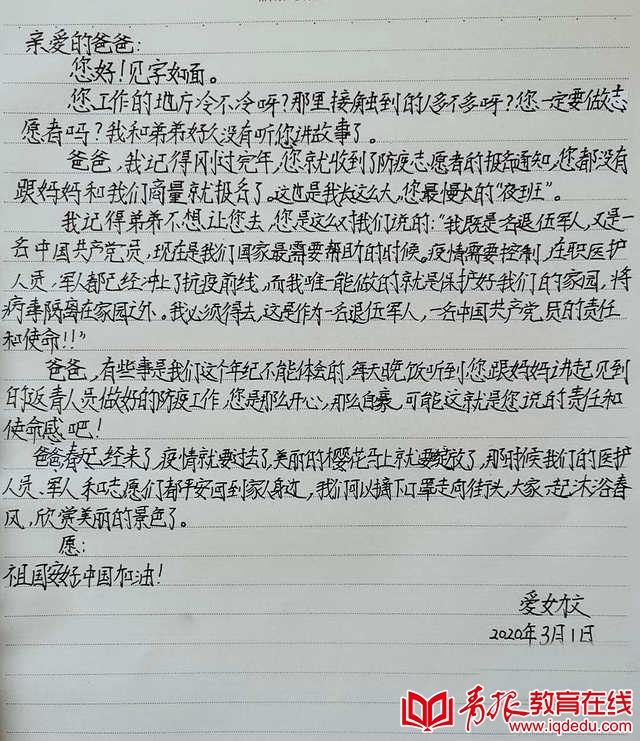 亲爱的爸爸:
您好!见字如面。
您工作的地方冷不冷呀?那里接触到的人多不多呀?您一定要做志
愿者吗?我和弟弟好久没有听您讲故事了。
爸爸,我记得刚过完年,您就收到了防疫志愿者的报名通知,您都没有
跟妈妈和我们商量就报名了。这也是我长这么大,您最慢长的“夜班”。
我记得弟弟不想让您去,您是这么对我们说的:“我既是名退伍军人,又是一
名中国共产党员,现在是我们国家最需要帮助的时候。疫情需要控制,在职医护
人员、军人都已经冲上了抗疫前线,而我唯一能做的就是保护好我们的家园,将
病毒隔离在家园之外。我必须得去,这是作为一名退伍军人,一名中国共产党员的责任
和使命!!”
爸爸,有些事是我们这个年纪不能体会的,每天晚饭听到您跟妈妈讲起见到
的返青人员做好的防疫工作,您是那么开心,那么自豪,可能这就是您说的责任和
使命感吧!
爸爸,春天已经来了,疫情就要过去了,美丽的樱花马上就要绽放了,那时候我们的医护
人员、军人和志愿们都平安回到家人身边,我们可以摘下口罩走向街头,大家一起沐浴春
风,欣赏美丽的景色了。
愿:
祖国安好中国加油!
爱女
2020年3月1日
青报教育在线
www.iqdedu.com